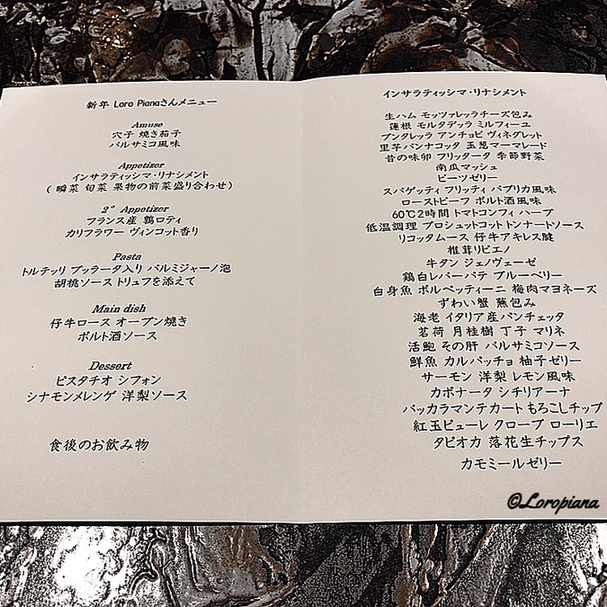 新年 Loro Pianaさんメニュー
Amuse
穴子 焼き茄子
バルサミコ風味
Appetizer
インサラティッシマ・リナシメント
( 瞬菜 旬菜 果物の前菜盛り合わせ )
2° Appetizer
フランス産 鶉ロティ
カリフラワー ヴィンコット香り
Pasta
トルテッリ ブッラータ入り パルミジャーノ泡
胡桃ソース トリュフを添えて
Main dish
仔牛ロース オーブン焼き
ポルト酒ソース
Dessert
ピスタチオ シフォン
シナモンメレンゲ 洋梨ソース
食後のお飲み物
インサラティッシマ・リナシメント
生ハム モッツァレッラチーズ包み
蓮根 モルタデッラ ミルフィーユ
プンタレッラ アンチョビ ヴィネグレット
里芋パンナコッタ 玉葱マーマレード
昔の味卵 フリッタータ 季節野菜
南瓜マッシュ
ビーツゼリー
スパゲッティ フリッティ パプリカ風味
ローストビーフ ポルト酒風味
60℃2時間 トマトコンフィ ハーブ
低温調理 プロシュットコット トンナートソース
リコッタムース 仔牛アキレス腱
椎茸リピエノ
牛タン ジェノヴェーゼ
鶏白レバーパテ ブルーベリー
白身魚 ポルペッティーニ 梅肉マヨネーズ
ずわい蟹 蕪包み
海老 イタリア産パンチェッタ
茗荷 月桂樹 丁子 マリネ
活鮑 その肝 バルサミコソース
鮮魚 カルパッチョ 柚子ゼリー
サーモン 洋梨 レモン風味
カポナータ シチリアーナ
バッカラマンテカート もろこしチップ
紅玉ピューレ クローブ ローリエ
タピオカ 落花生チップス
カモミールゼリー
©Loropiana